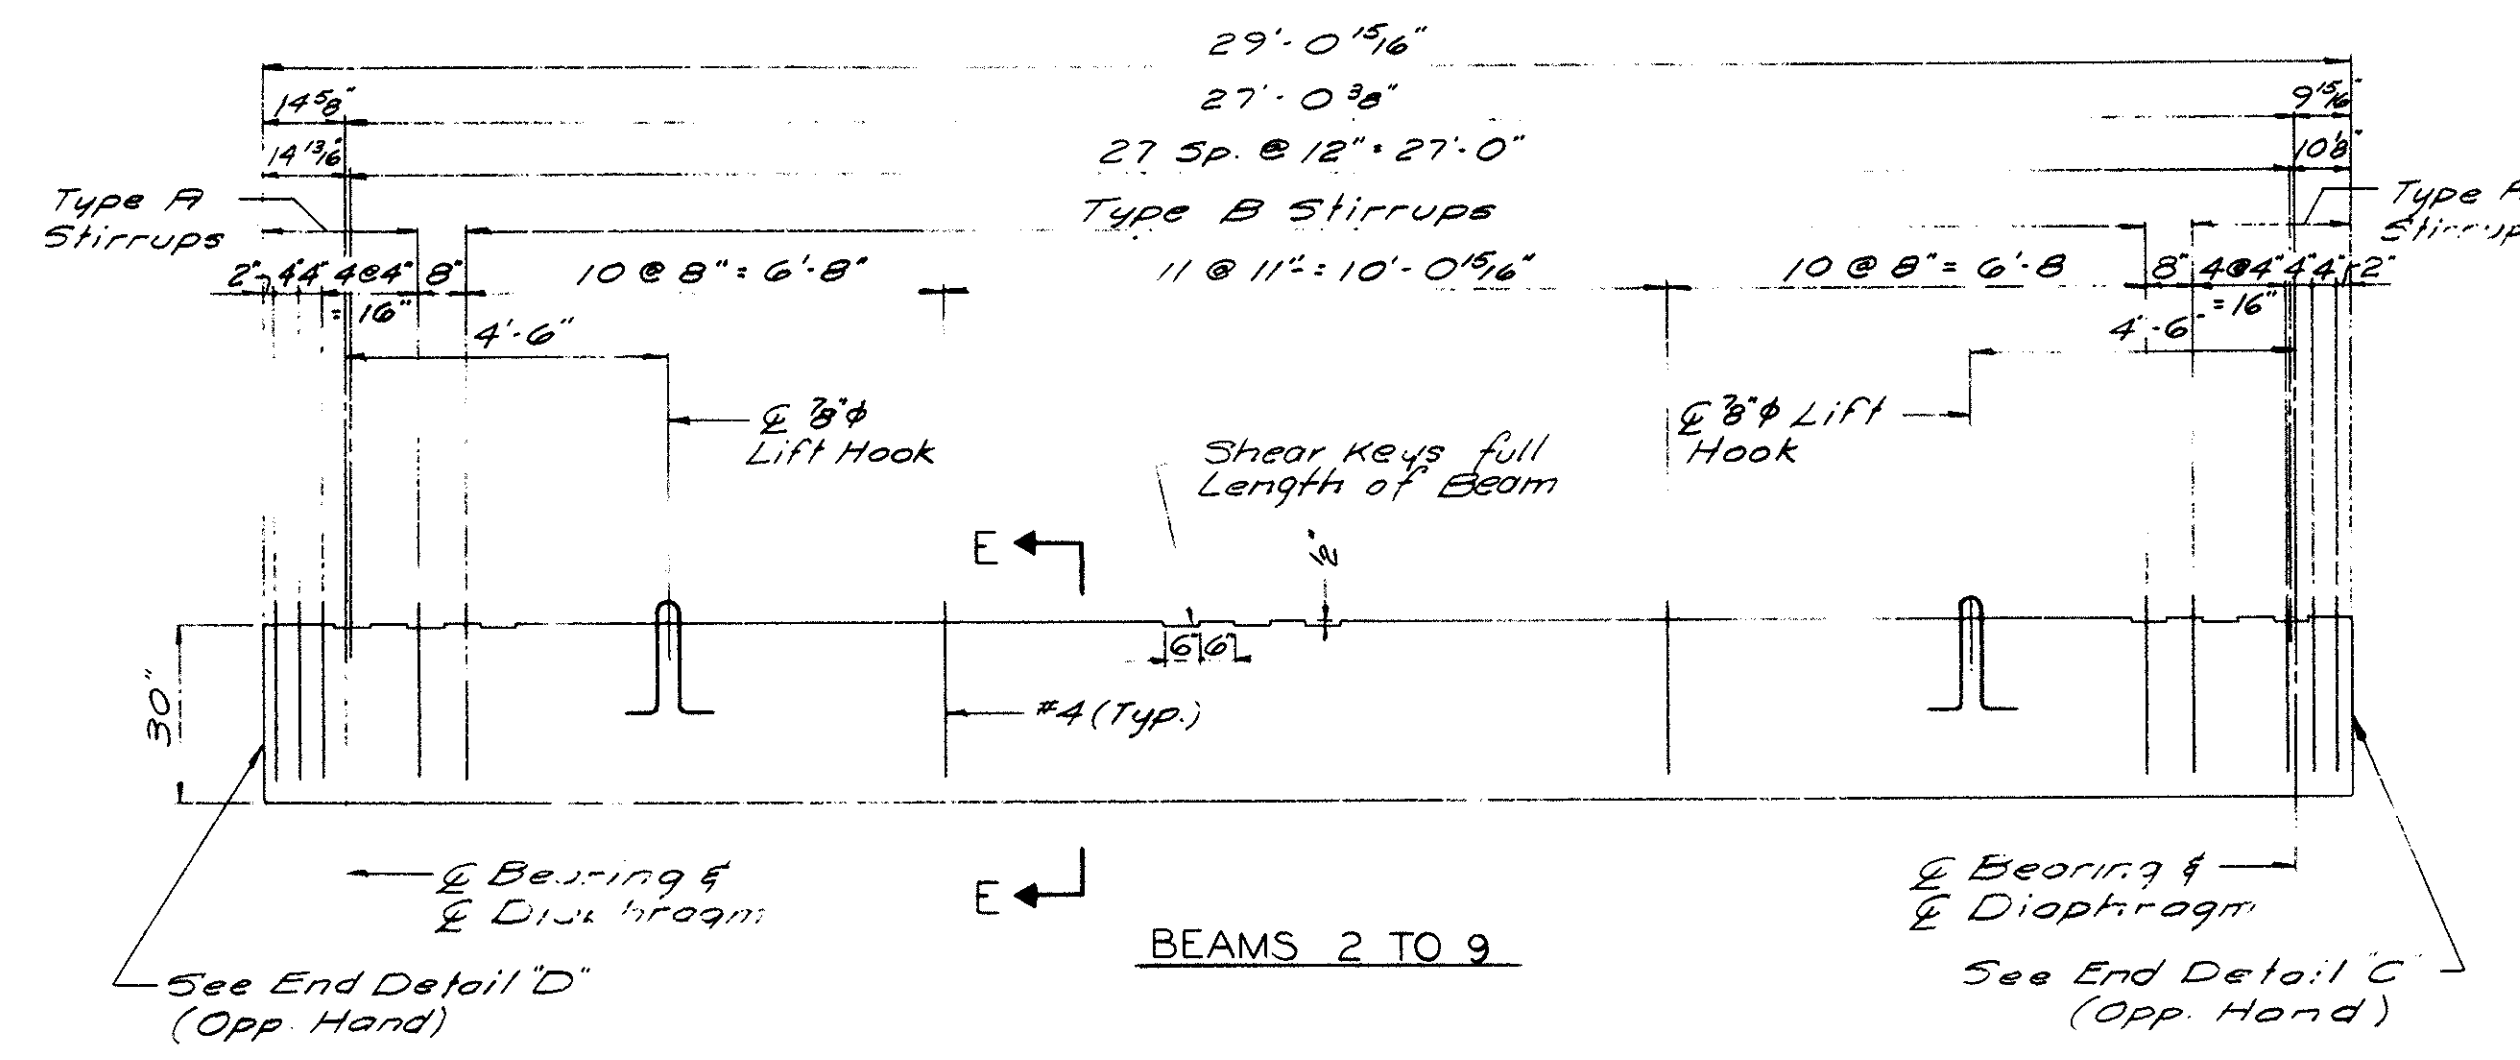 29'-0 15/16"
14 5/8"
27'-0 3/8"
9 15/16"
14 13/16"
27 Sp. @ 12" = 27'-0"
10 1/8"
Type A
Stirrups
Type B Stirrups
Type A
Stirrup
2" 4" 4" 4@4" 8"
= 16"
10 @ 8" = 6'-8"
11 @ 11"± = 10'-0 15/16"
10 @ 8" = 6'-8
8" 4@4" 4" 4" 2"
= 16"
4'-6"
4'-6"
℄ 7/8"ϕ
Lift Hook
Shear Keys full
Length of Beam
℄ 7/8"ϕ Lift
Hook
E
1/2"
6" 6"
30"
#4 (Typ.)
℄ Bearing &
℄ Diaphragm
E
℄ Bearing &
℄ Diaphragm
BEAMS 2 TO 9
See End Detail "D"
(Opp. Hand)
See End Detail "C"
(Opp. Hand)